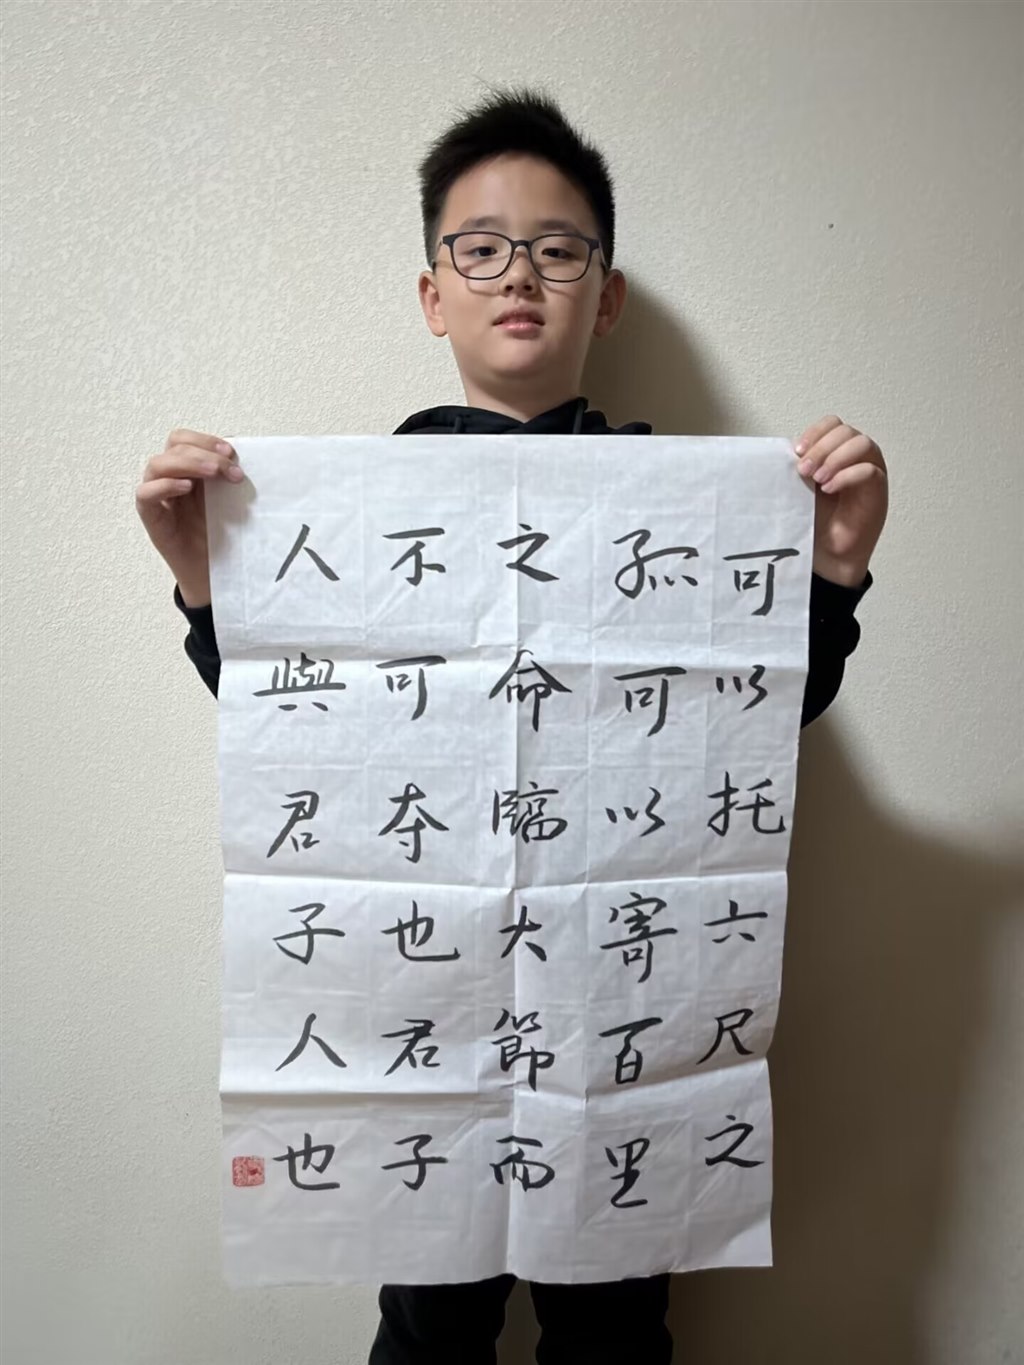 可以托六尺之
孤可以寄百里
之命臨大節而
不可夺也君子
人與君子人也